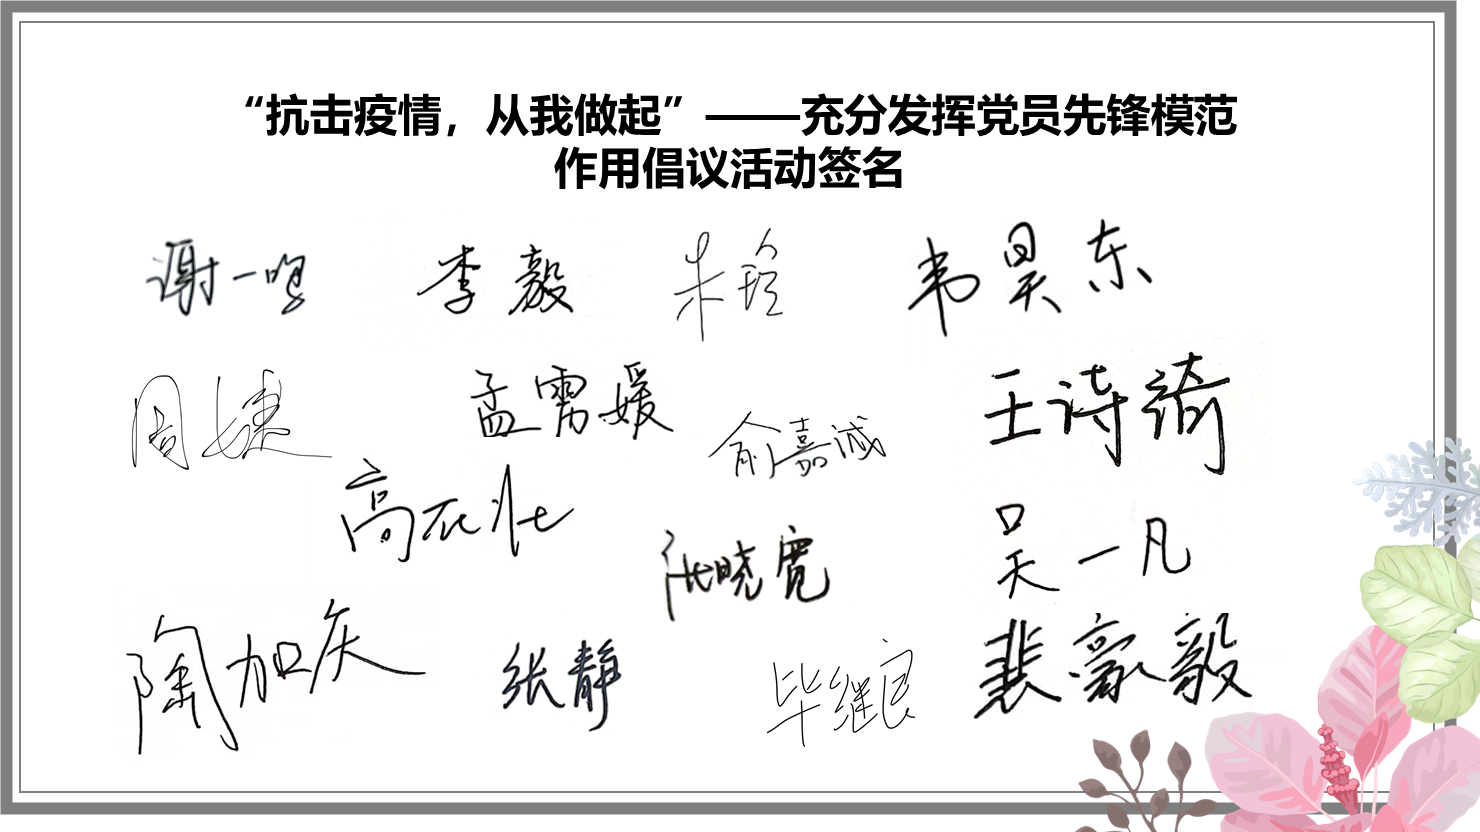 “抗击疫情，从我做起”——充分发挥党员先锋模范
作用倡议活动签名
谢一鸣 李毅 朱玲 韦昊东
周婕 孟雳媛 俞嘉诚 王诗绮
高在壮 张晓宽 吴一凡
陶加庆 张静 毕继良 裴豪毅